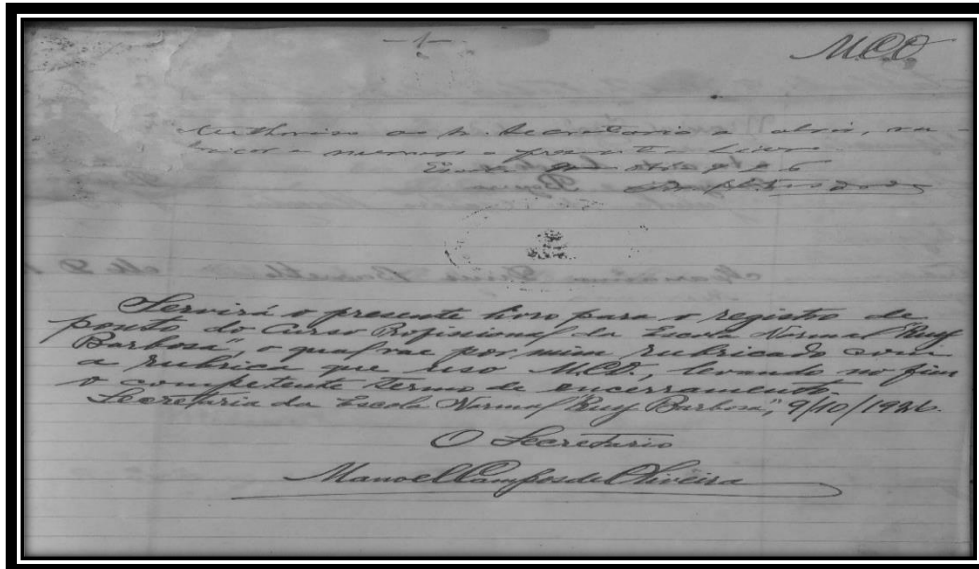 -1-
M.C.O.
Authoriso ao Sr. Secretario a abrir, ru-
bricar e numerar o presente livro
Servirá o presente livro para o registro de
ponto do Curso Profissional da Escola Normal "Ruy
Barbosa", o qual vae por mim rubricado com
a rubrica que uso M.C.O., levando no fim
o competente termo de encerramento.
Secretaria da Escola Normal "Ruy Barbosa", 9/10/1926.
O Secretario
Manoel Campos de Oliveira